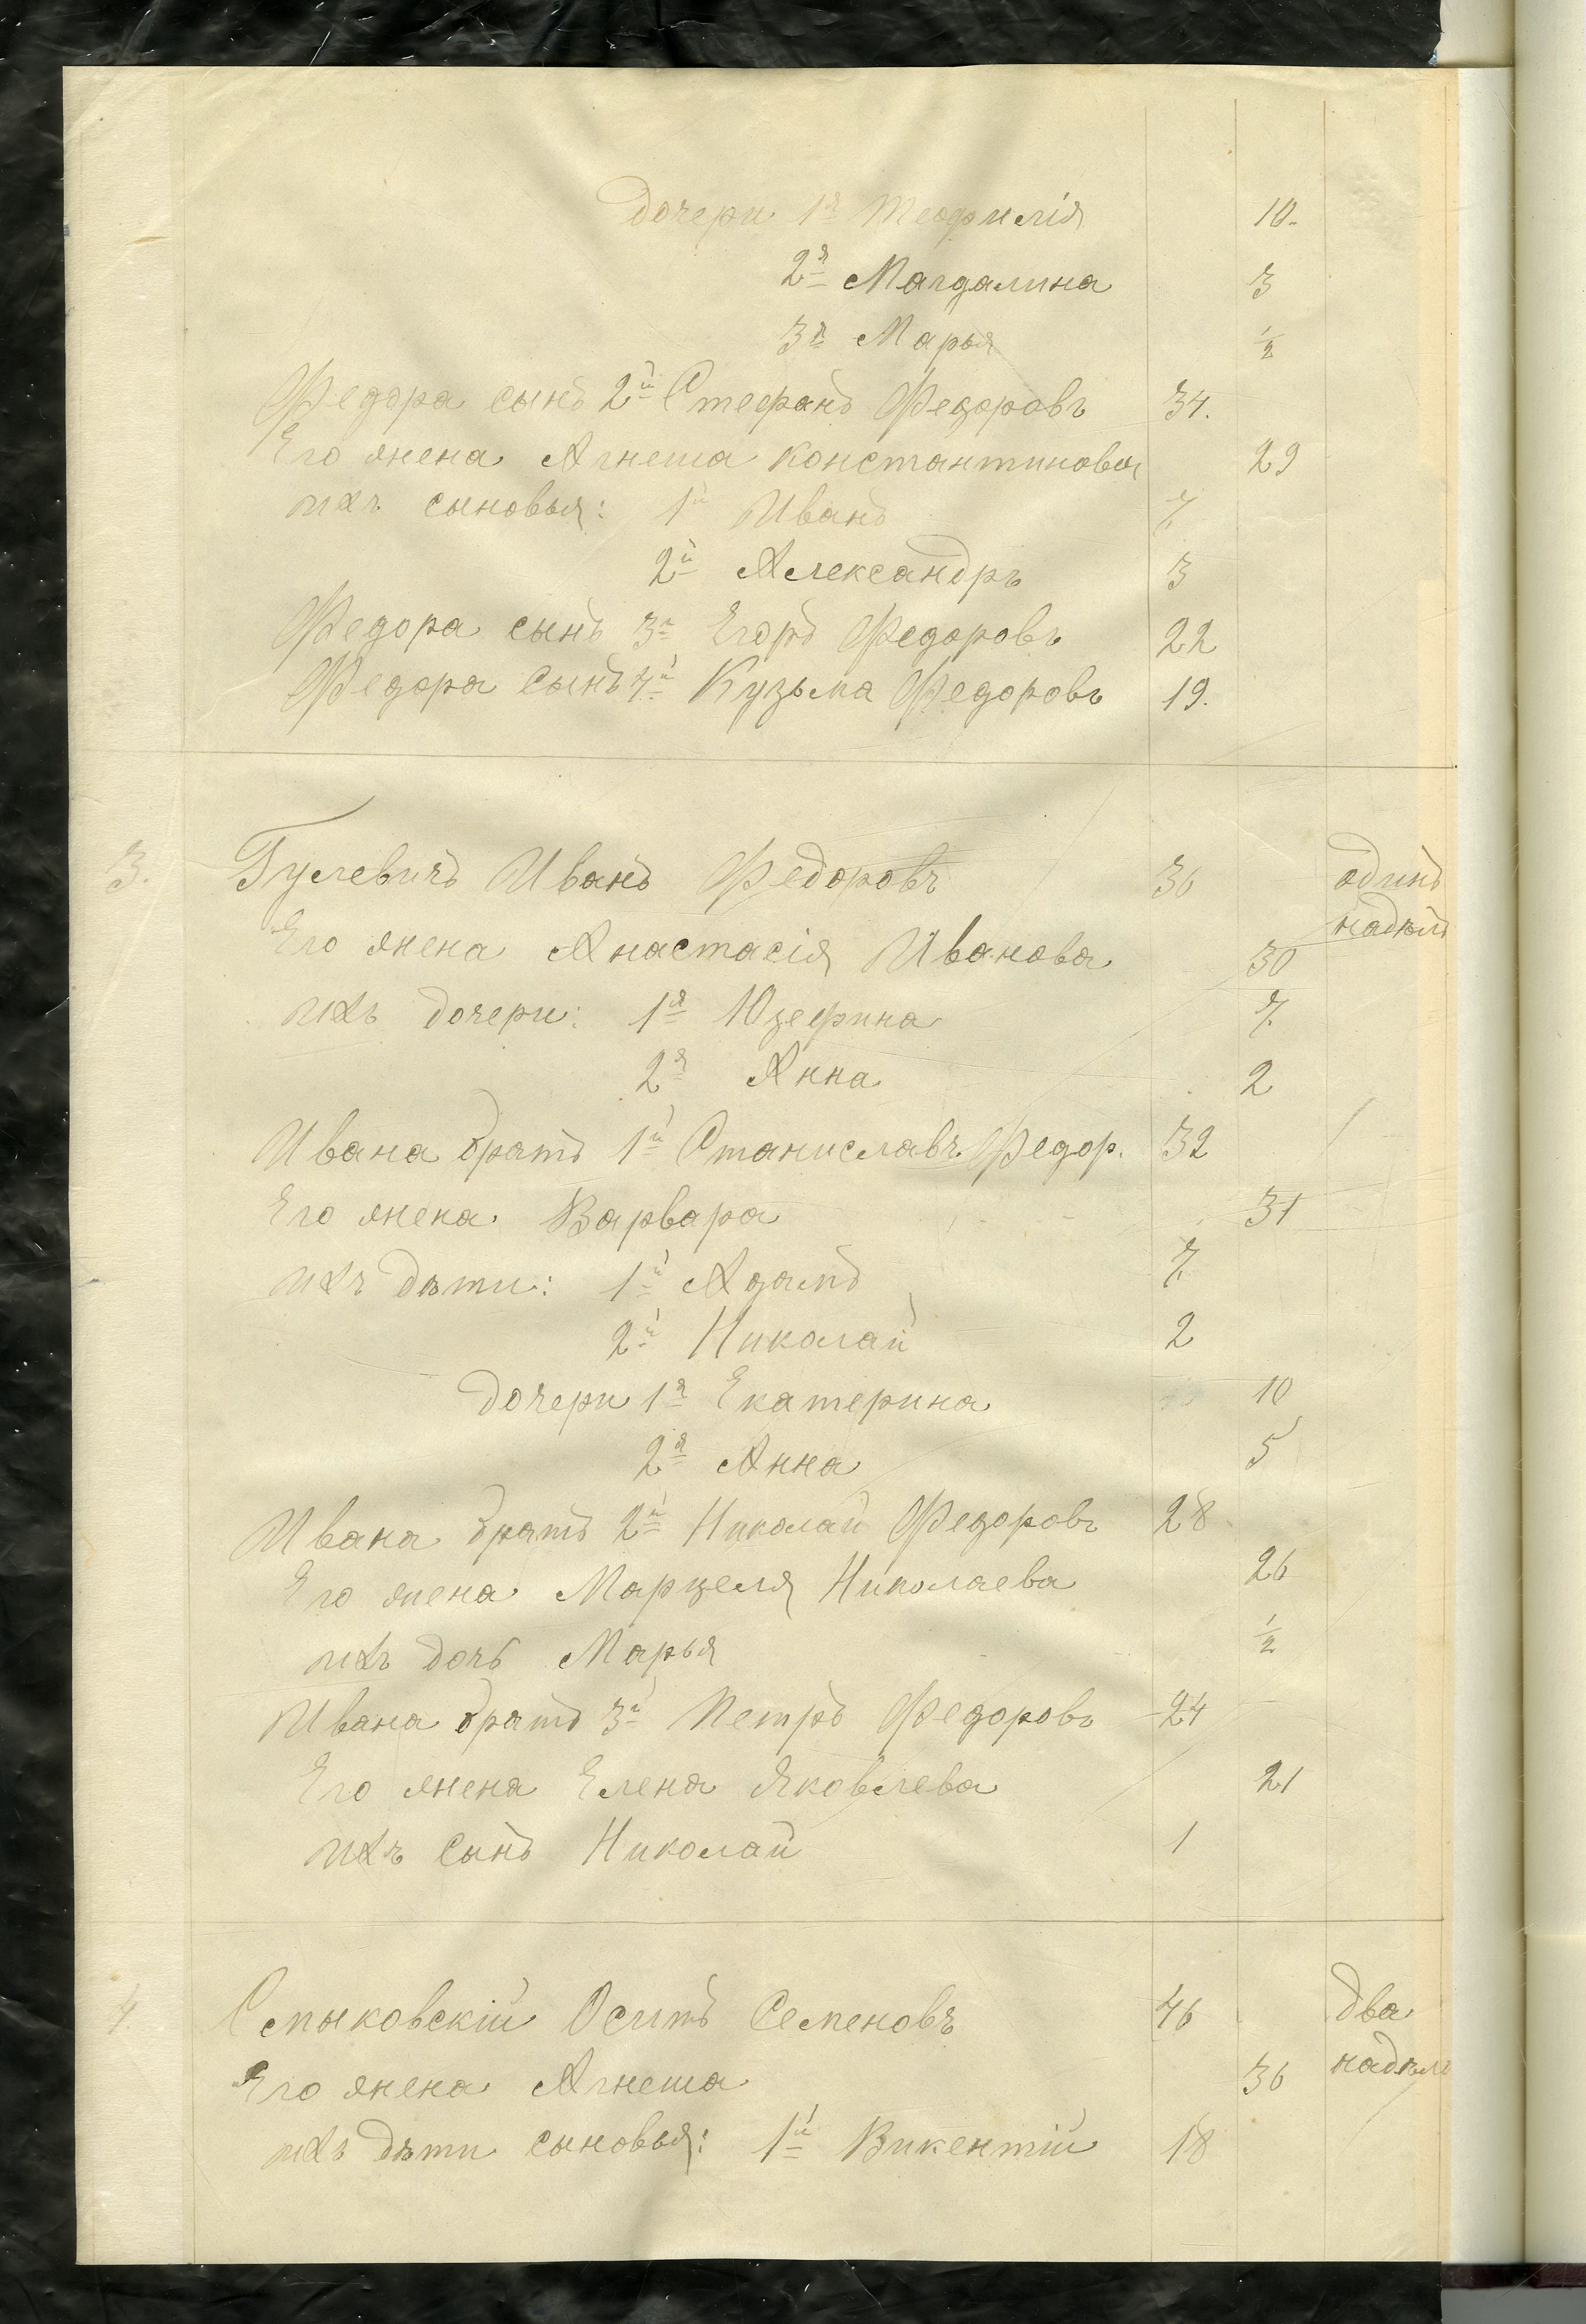 дочери 1я Теофилія 10.
2я Магдалина 3
3я Марья ½
Федора сынъ 2й Стефанъ Федоровъ 34.
Его жена Агнеша Константинова 29
ихъ сыновья: 1й Иванъ 7
2й Александръ 3
Федора сынъ 3й Егоръ Федоровъ 22
Федора сынъ 4й Кузьма Федоровъ 19.
3. Гулевичъ Иванъ Федоровъ 36 одинъ
надѣлъ
Его жена Анастасія Иванова 30
ихъ дочери: 1я Юзефина 7
2я Анна 2
Ивана братъ 1й Станиславъ Федор. 32
Его жена Варвара 31
ихъ дѣти: 1й Адамъ 7
2й Николай 2
дочери 1я Екатерина 10
2я Анна 5
Ивана братъ 2й Николай Федоровъ 28
Его жена Марцеля Николаева 26
ихъ дочь Марья ½
Ивана братъ 3й Петръ Федоровъ 24
Его жена Елена Яковлева 21
ихъ сынъ Николай 1
4. Смыковскій Осипъ Семеновъ 46 два
надѣла
Его жена Агнеша 36
ихъ дѣти сыновья: 1й Викентій 18